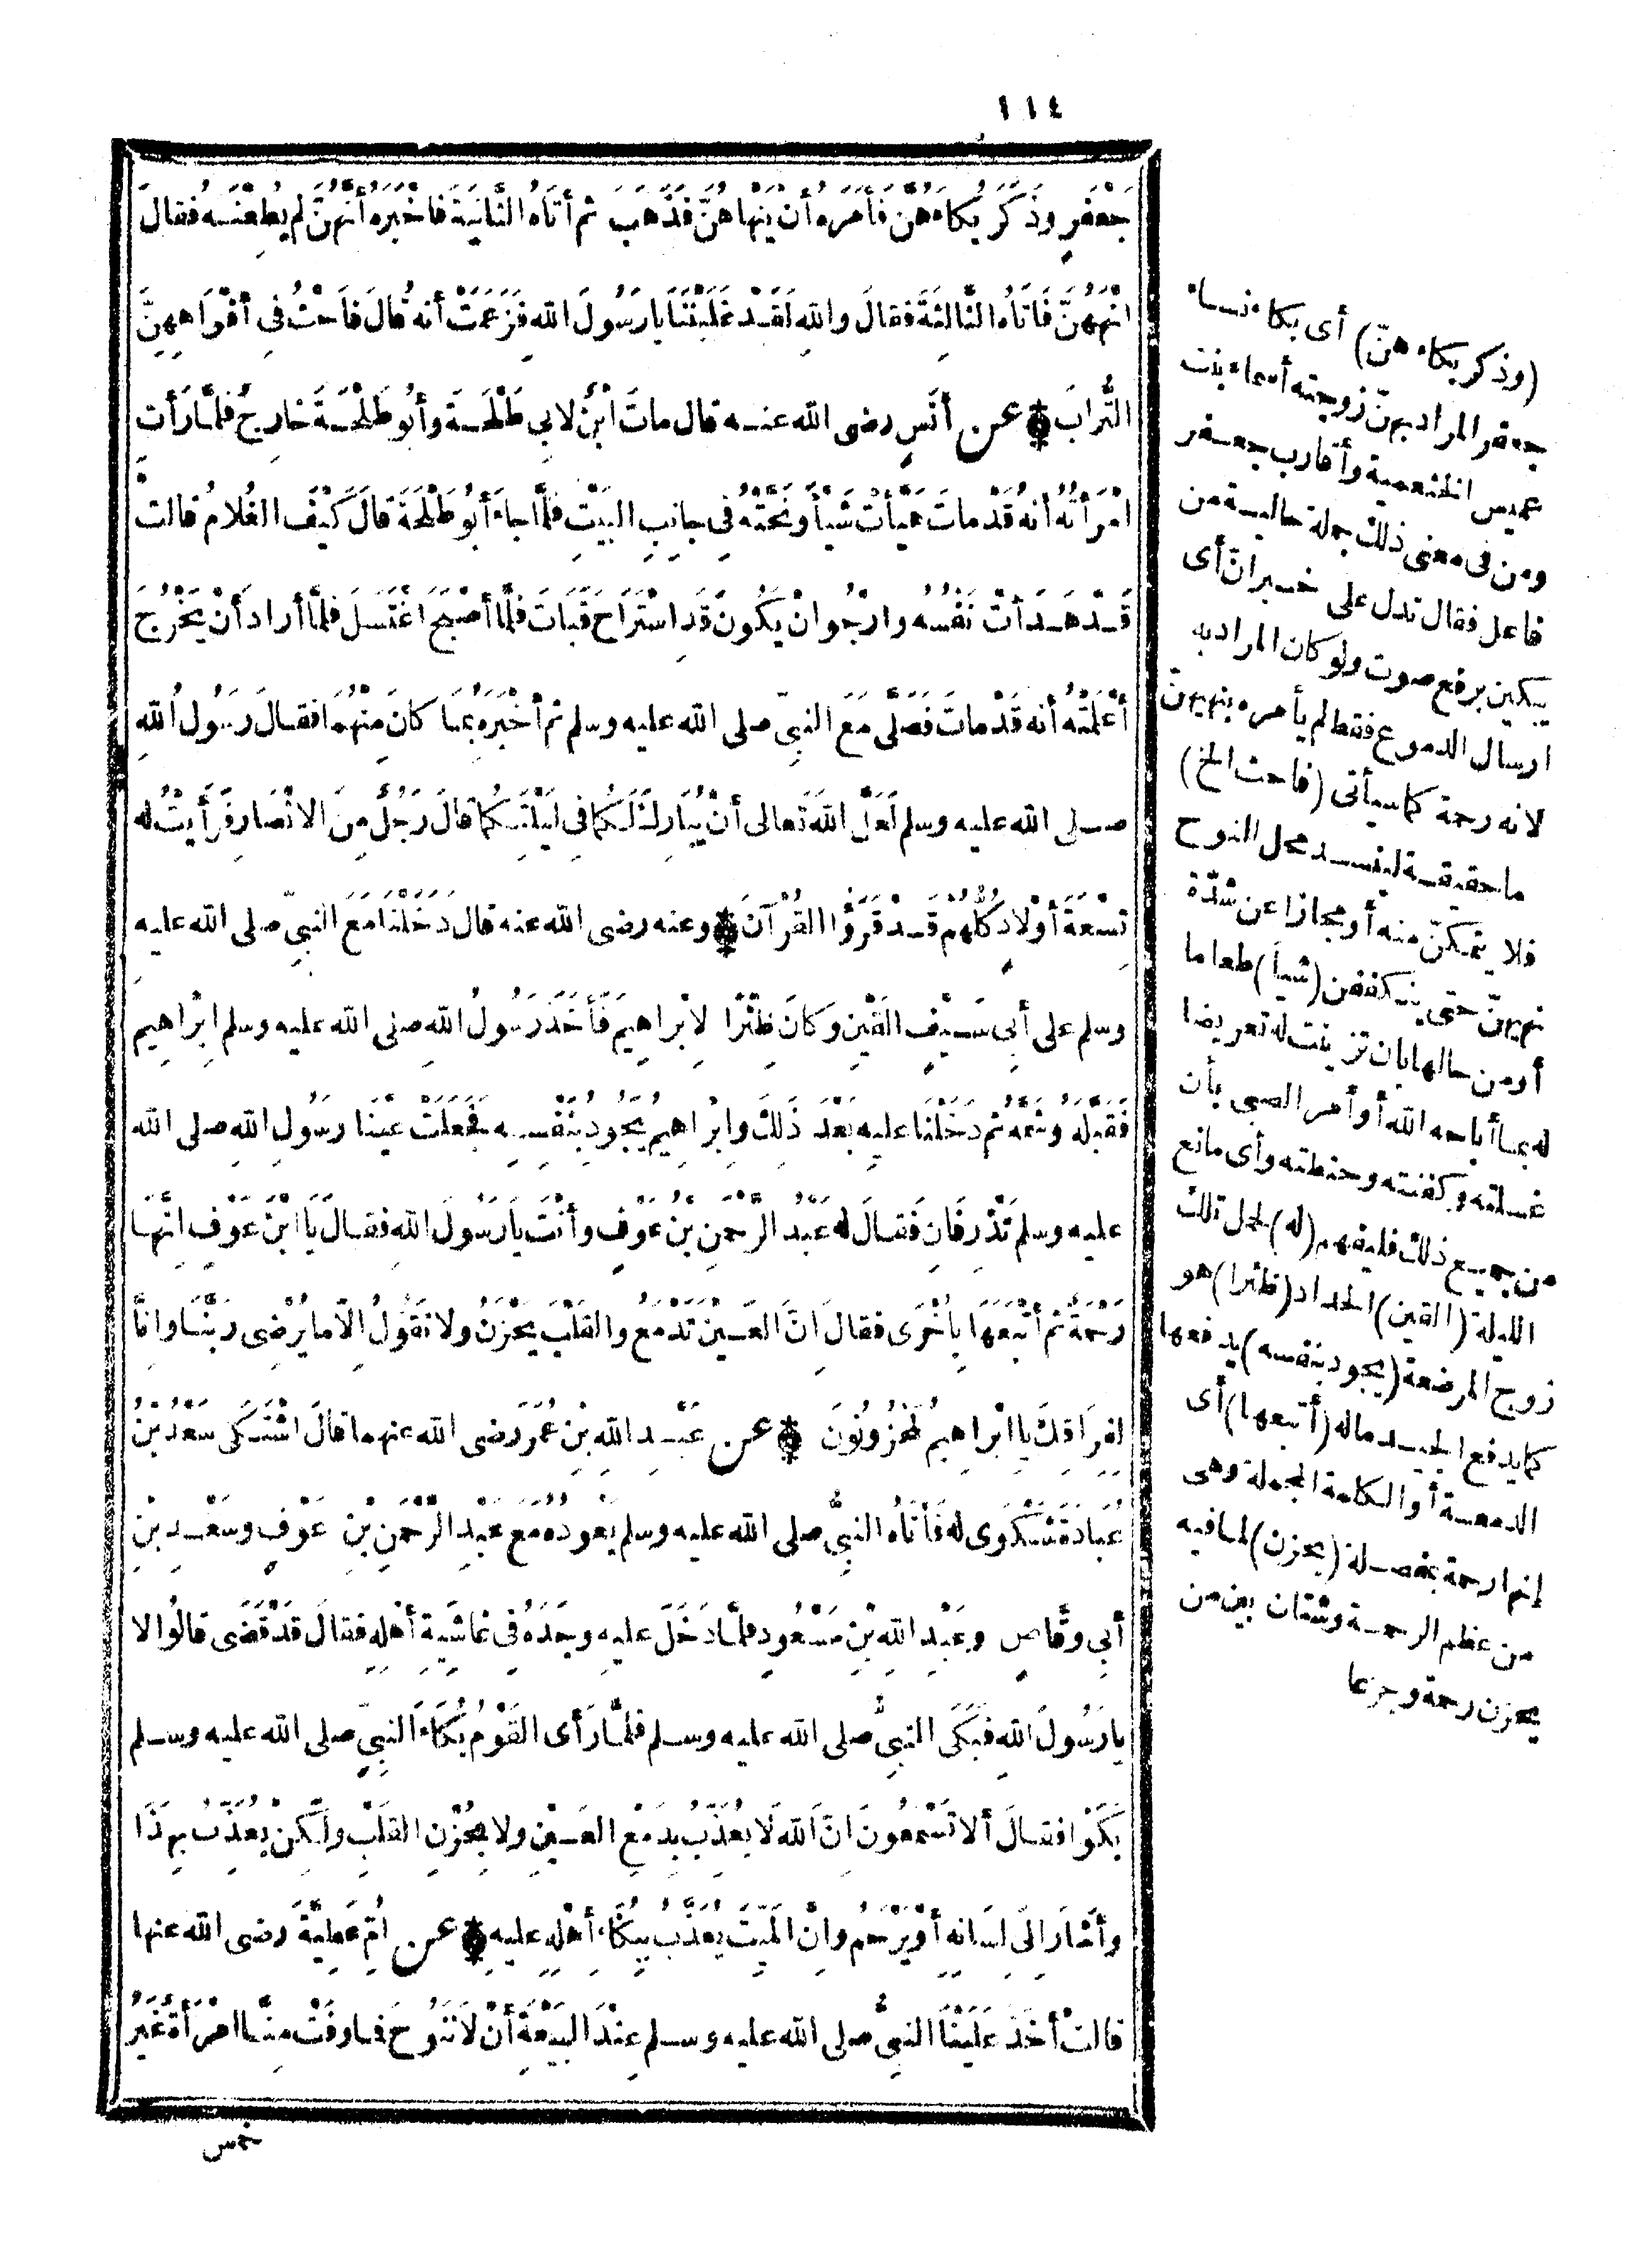 ١١٤
جَعْفَرٍ وذَكَرَ بُكاءَهُنَّ فَأمَرَهُ أنْ يَنْهاهُنَّ فَذَهَبَ ثم أتاهُ الثَّانِيَةَ فاخْبَرَهُ أنَّهُنَّ لم يُطِعْنَهُ فقالَ
انْهَهُنَّ فَاتاهُ الثَّالِثَةَ فقالَ واللهِ لَقَدْ غَلَبْنَنَا يا رَسُولَ اللهِ فَزَعَمَتْ أنه قالَ فاحْثُ في أفْواهِهِنَّ
التُّرابَ عن أنَسٍ رضى الله عنه قال ماتَ ابْنٌ لابِي طَلْحَةَ وأبُو طَلْحَةَ خارِجٌ فلمَّا رَأتِ
امْرَأتُهُ أنهُ قَدْ ماتَ هَيَّأتْ شَيْأً ونَحَّتْهُ في جانِبِ البَيْتِ فلمَّا جاءَ أبُو طَلْحَةَ قالَ كَيْفَ الغُلامُ قالتْ
قَدْ هَدَأتْ نَفْسُهُ وارْجُو انْ يَكُونَ قَدِ اسْتَراحَ فَباتَ فلمَّا أصْبَحَ اغْتَسَلَ فلمَّا أرادَ أنْ يَخْرُجَ
أعْلَمَتْهُ أنه قَدْ ماتَ فَصَلَّى مَعَ النبيِّ صلى الله عليه وسلم ثم أخْبَرَهُ بمَا كانَ مِنْهُمَا فقالَ رَسُولُ اللهِ
صلى الله عليه وسلم لَعَلَّ اللهَ تَعالى أنْ يُبَارِكَ لَكُمَا فِي لَيْلَتِكُمَا قالَ رَجُلٌ مِنَ الانْصَارِ فَرَأيْتُ له
تِسْعَةَ أوْلادٍ كُلُّهُمْ قَدْ قَرَؤُا القُرْآنَ وعنه رضى الله عنه قال دَخَلْنَا مَعَ النبيِّ صلى الله عليه
وسلم على أبِي سَيْفٍ القَيْنِ وكانَ ظِئْرًا لابْراهِيمَ فَأخَذَ رَسُولُ اللهِ صلى الله عليه وسلم ابْراهِيمَ
فَقَبَّلَهُ وشَمَّهُ ثم دَخَلْنَا عليهِ بَعْدَ ذَلِكَ وابْراهِيمُ يَجُودُ بِنَفْسِهِ فَجَعَلَتْ عَيْنَا رسُولِ اللهِ صلى الله
عليه وسلم تَذْرِفَانِ فَقالَ له عَبْدُ الرَّحْمَنِ بْنُ عَوْفٍ وأنْتَ يا رَسُولَ اللهِ فقالَ يَا ابْنَ عَوْفٍ انَّهَا
رَحْمَةٌ ثم أتْبَعَهَا بِأُخْرَى فقالَ انَّ العَيْنَ تَدْمَعُ والقَلْبَ يَحْزَنُ ولا نَقُولُ الَّا ما يُرْضِى رَبَّنَا وانَّا
لِفِرَاقِكَ يا ابْراهِيمُ لَمَحْزُونُونَ عن عَبْدِ اللهِ بْنِ عُمَرَ رَضى الله عنهما قالَ اشْتَكَى سَعْدُ بْنُ
عُبادَةَ شَكْوَى له فَأتَاهُ النبيُّ صلى الله عليه وسلم يَعُودُهُ مع عَبْدِ الرَّحْمَنِ بْنِ عَوْفٍ وسَعْدِ بْنِ
أبي وقَّاصٍ وعَبْدِ اللهِ بْنِ مَسْعُودٍ فلمَّا دَخَلَ عليهِ وجَدَهُ في غاشِيَةِ أهْلِهِ فقالَ قَدْ قَضَى قالُوا لا
يا رَسُولَ اللهِ فَبَكَى النبيُّ صلى الله عليه وسلم فلمَّا رَأى القَوْمُ بُكَاءَ النبيِّ صلى الله عليه وسلم
بَكَوْا فقالَ ألا تَسْمَعُونَ انَّ اللهَ لَا يُعَذِّبُ بِدَمْعِ العَيْنِ ولا بِحُزْنِ القَلْبِ ولَكِنْ يُعَذِّبُ بِهَذَا
وأشَارَ إلَى لِسَانِهِ أوْ يَرْحَمُ وانَّ المَيِّتَ يُعَذَّبُ بِبُكَاءِ أهْلِهِ عليهِ عن أُمِّ عَطِيَّةَ رضى الله عنها
قالتْ أخَذَ عَلَيْنَا النبيُّ صلى الله عليه وسلم عِنْدَ البَيْعَةِ أنْ لَا نَنُوحَ فمَا وفَتْ مِنَّا امْرَأةٌ غَيْرُ
خمس
(وذكر بكاءهنّ) أى بكاء نساء
جعفر المراد بهنّ زوجته أسماء بنت
عميس الخثعمية وأقارب جعفر
ومن فى معنى ذلك جملة حالية من
فاعل فقال تدل على خبران أى
يبكين برفع صوت ولو كان المراد به
ارسال الدموع فقط لم يأمره بنهيهنّ
لانه رحمة كما سيأتى (فاحث الخ)
ما حقيقة ليفسد محل النوح
فلا يتمكنّ منه أو مجازا عن شدّة
نهيهنّ حتى ينكففن (شيأ) طعاما
أو من حالها بان تزينت له تعريضا
له بما أباحه الله أو أمر الصبى بأن
غسلته وكفنته وحنطته وأى مانع
من جميع ذلك فليفهم (له) لحل تلك
الليلة (القين) الحداد (ظئرا) هو
زوج المرضعة (يجود بنفسه) يدفعها
كما يدفع الجيد ماله (أتبعها) أى
الدمعة أو الكلمة المجملة وهى
إنها رحمة بمفصلة (يحزن) لما فيه
من عظم الرحمة وشتان بين من
يحزن رحمة وجزعا